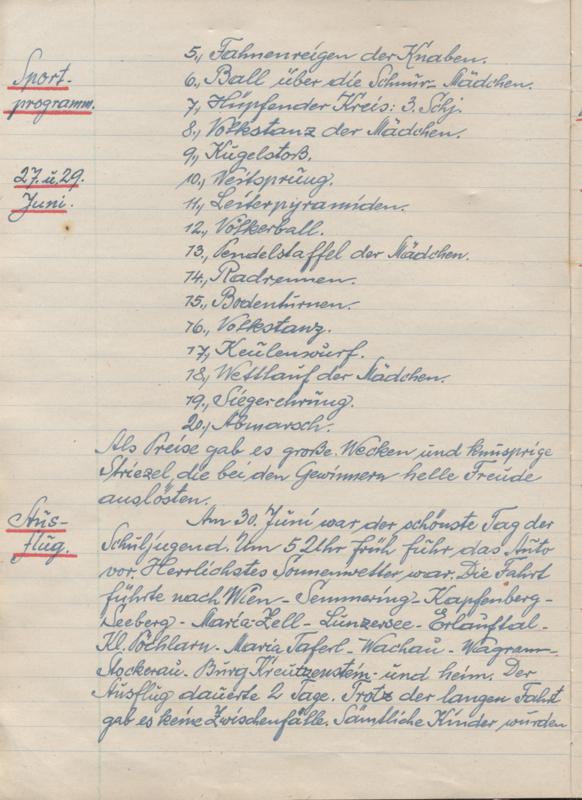 5., Fahnenreigen der Knaben.
Sport-
6., Ball über die Schnur- Mädchen.
programm.
7., Hüpfender Kreis: 3. Schj.
8., Volkstanz der Mädchen.
9., Kugelstoß.
27. u. 29.
10., Weitsprung.
Juni.
11., Leiterpyramiden.
12., Völkerball.
13., Pendelstaffel der Mädchen.
14., Radrennen.
15., Bodenturnen.
16., Volkstanz.
17., Keulenwurf.
18., Wettlauf der Mädchen.
19., Siegerehrung.
20., Abmarsch.
Als Preise gab es große Wecken und knusprige
Striezel, die bei den Gewinnern helle Freude
auslösten.
Aus-
flug.
Am 30. Juni war der schönste Tag der
Schuljugend. Um 5 Uhr früh fuhr das Auto
vor. Herrlichstes Sonnenwetter war. Die Fahrt
führte nach Wien - Semmering - Kapfenberg -
Seeberg - Maria-Zell - Lunzersee - Erlauftal -
Kl. Pöchlarn - Maria Taferl - Wachau - Wagram -
Stockerau. Burg Kreutzenstein - und heim. Der
Ausflug dauerte 2 Tage. Trotz der langen Fahrt
gab es keine Zwischenfälle. Sämtliche Kinder wurden